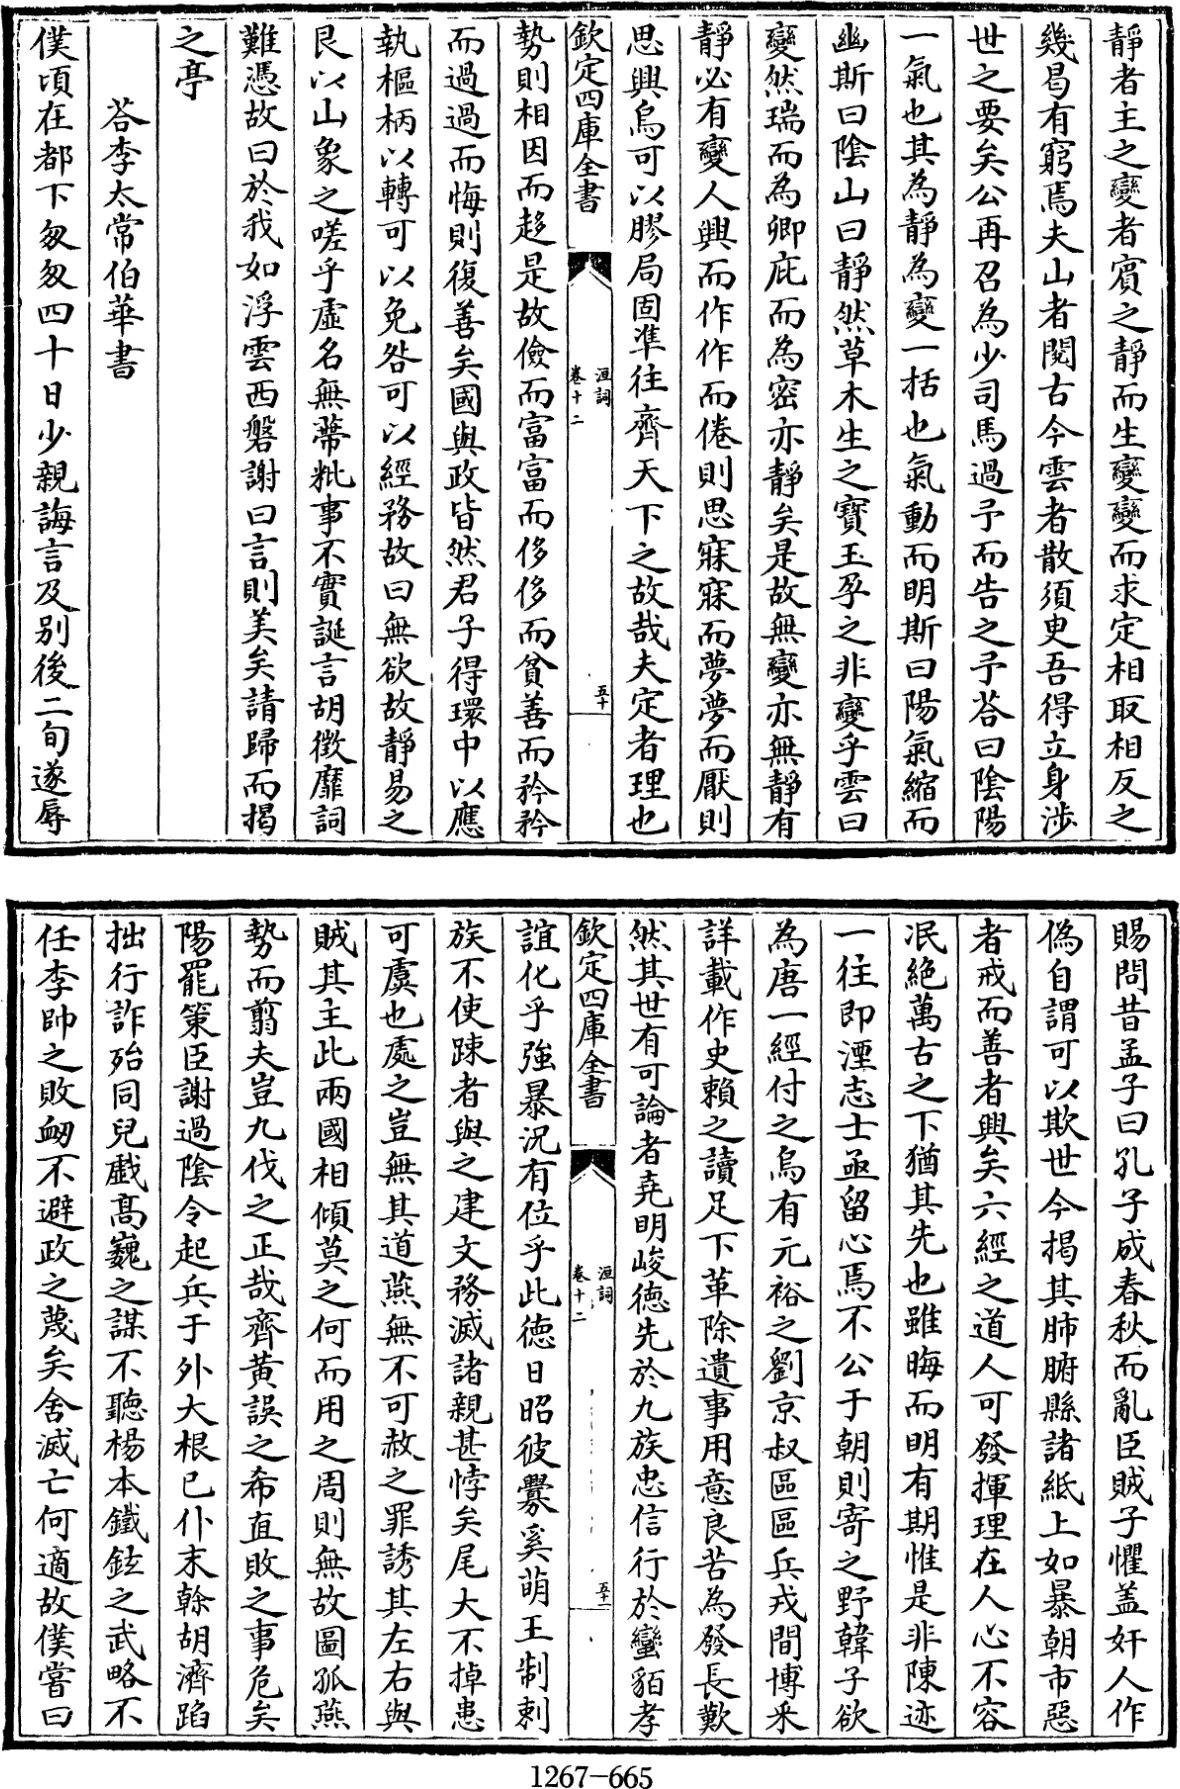 靜者主之變者賓之靜而生變變而求定相取相反之
幾曷有窮焉夫山者閱古今雲者散須臾吾得立身涉
世之要矣公再召為少司馬過予而告之予荅曰陰陽
一氣也其為靜為變一括也氣動而明斯曰陽氣縮而
幽斯曰陰山曰靜然草木生之寶玉孕之非變乎雲曰
變然瑞而為卿庇而為密亦靜矣是故無變亦無靜有
靜必有變人興而作作而倦則思寐寐而夢夢而厭則
思興烏可以膠局固準往齊天下之故哉夫定者理也
欽定四庫全書
洹詞
卷十二
五十
勢則相因而趍是故儉而富富而侈侈而貧善而矜矜
而過過而悔則復善矣國與政皆然君子得環中以應
執樞柄以轉可以免咎可以經務故曰無欲故靜易之
艮以山象之嗟乎虛名無蔕粃事不實誕言胡徵靡詞
難憑故曰於我如浮雲西磐謝曰言則美矣請歸而揭
之亭
荅李太常伯華書
僕頃在都下匆匆四十日少親誨言及别後二旬遂辱
賜問昔孟子曰孔子成春秋而亂臣賊子懼盖奸人作
偽自謂可以欺世今揭其肺腑縣諸紙上如暴朝市惡
者戒而善者興矣六經之道人可發揮理在人心不容
泯絶萬古之下猶其先也雖晦而明有期惟是非陳迹
一往即湮志士亟留心焉不公于朝則寄之野韓子欲
為唐一經付之烏有元裕之劉京叔區區兵戎間博采
詳載作史賴之讀足下革除遺事用意良苦為發長歎
然其世有可論者堯明峻德先於九族忠信行於蠻貊孝
欽定四庫全書
洹詞
卷十二
五十一
誼化乎強暴況有位乎此德日昭彼釁奚萌王制剌
族不使踈者與之建文務滅諸親甚悖矣尾大不掉患
可虞也處之豈無其道燕無不可赦之罪誘其左右與
賊其主此兩國相傾莫之何而用之周則無故圖孤燕
勢而翦夫豈九伐之正哉齊黄誤之希直敗之事危矣
陽罷策臣謝過陰令起兵于外大根已仆末榦胡濟蹈
拙行詐殆同兒戲髙巍之謀不聽楊本鐵鉉之武略不
任李帥之敗衂不避政之蔑矣舍滅亡何適故僕嘗曰
1267-665